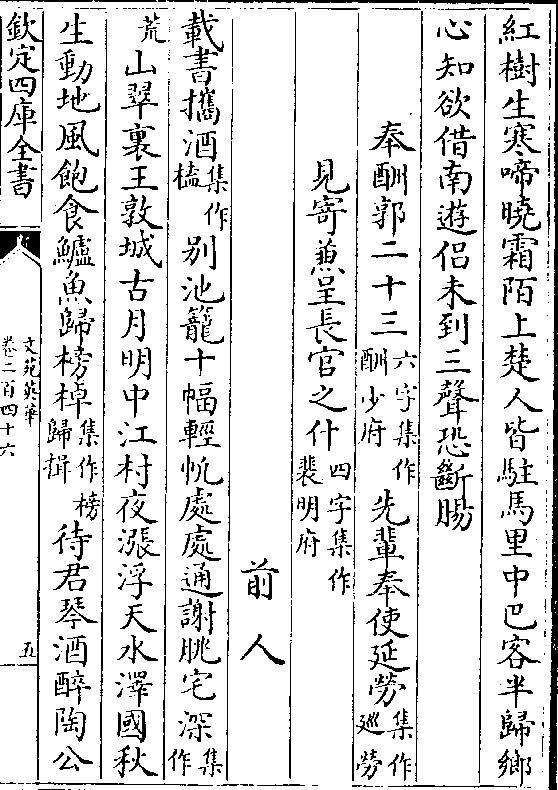 紅樹生寒啼曉霜陌上楚人皆駐馬里中巴客半歸鄉
心知欲借南遊侣未到三聲恐斷腸
奉酬郭二十三六字集作酬少府先輩奉使延勞集作廵勞
見寄兼呈長官之什四字集作裴明府
前人
載書攜酒集作榼别池籠十幅輕㠶處處通謝朓宅深集作
荒山翠裏王敦城古月明中江村夜漲浮天水澤國秋
生動地風飽食鱸魚歸榜棹集作榜歸揖待君琴酒醉陶公
欽定四庫全書
文苑英華
卷二百四十六
五